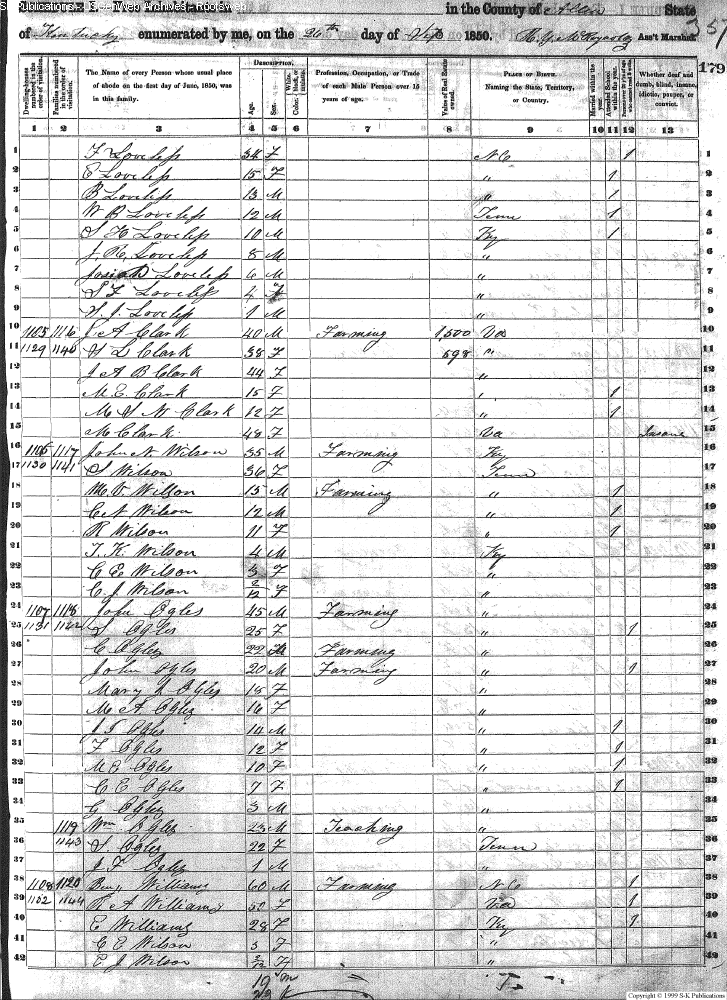 in the County of Allen State
of Kentucky enumerated by me, on the 26th day of Sept 1850. Ass't Marshal.
179
DESCRIPTION.
Dwelling-houses numbered in the order of visitation.
Families numbered in the order of visitation.
The Name of every Person whose usual place of abode on the first day of June, 1850, was in this family.
Age.
Sex.
White, Color, black, or mulatto.
Profession, Occupation, or Trade of each Male Person over 15 years of age.
Value of Real Estate owned.
PLACE OF BIRTH. Naming the State, Territory, or Country.
Married within the year.
Attended School within the year.
Whether deaf and dumb, blind, insane, idiotic, pauper, or convict.
1 2 3 4 5 6 7 8 9 10 11 12 13
1 F Lovelep 34 F N C 1 1
2 E Lovelep 15 F " 1 2
3 B Lovelep 13 M " 1 3
4 W B Lovelep 12 M Tenn 1 4
5 S H Lovelep 10 M Ky 1 5
6 J. R. Lovelep 8 M " 6
7 Josiah Lovelep 6 M " 7
8 S F Lovelep 4 " 8
9 W. J. Lovelep 1 M " 9
10 1105 1116 J. A Clark 40 M Farming 1,500 Va 10
11 1129 1140 L Clark 38 F 598 " 11
12 J A B Clark 44 F " 12
13 M. E. Clark 15 F " 1 13
14 M S N Clark 12 F " 1 14
15 M Clark 48 F Va Insane 15
16 1106 1117 John N Wilson 35 M Farming Ky 16
17 1130 1141 S Wilson 36 F Tenn 17
18 M. V. Wilson 15 M Farming " 1 18
19 C N Wilson 12 M " 1 19
20 R Wilson 11 F " 1 20
21 T. K. Wilson 4 M Ky 21
22 C E Wilson 3 F " 22
23 C. J. Wilson 2/12 F " 23
24 1107 1118 John Ogles 45 M Farming " 24
25 1131 1142 S Ogles 25 F " 1 25
26 C Ogles 22 M Farming " 26
27 John Ogles 20 M Farming " 1 27
28 Mary Ogles 18 F " 28
29 M A Ogles 16 F " 29
30 Ogles 14 M " 1 30
31 F Ogles 12 F " 1 31
32 M E Ogles 10 F " 1 32
33 C E Ogles 7 F " 1 33
34 G Ogles 3 M " 34
35 1119 Wm Ogles 23 M Teaching " 35
36 1143 S. Ogles 22 F Tenn 36
37 J F Ogles 1 M " 37
38 1108 1120 Benj Williams 60 M Farming N C 1 38
39 1132 1144 A Williams 50 F Va 1 39
40 E Williams 28 F Ky 1 40
41 C E Wilson 3 F " 41
42 E J Wilson 2/12 F " 42
19 m
23
Copyright © 1999 S-K Publications